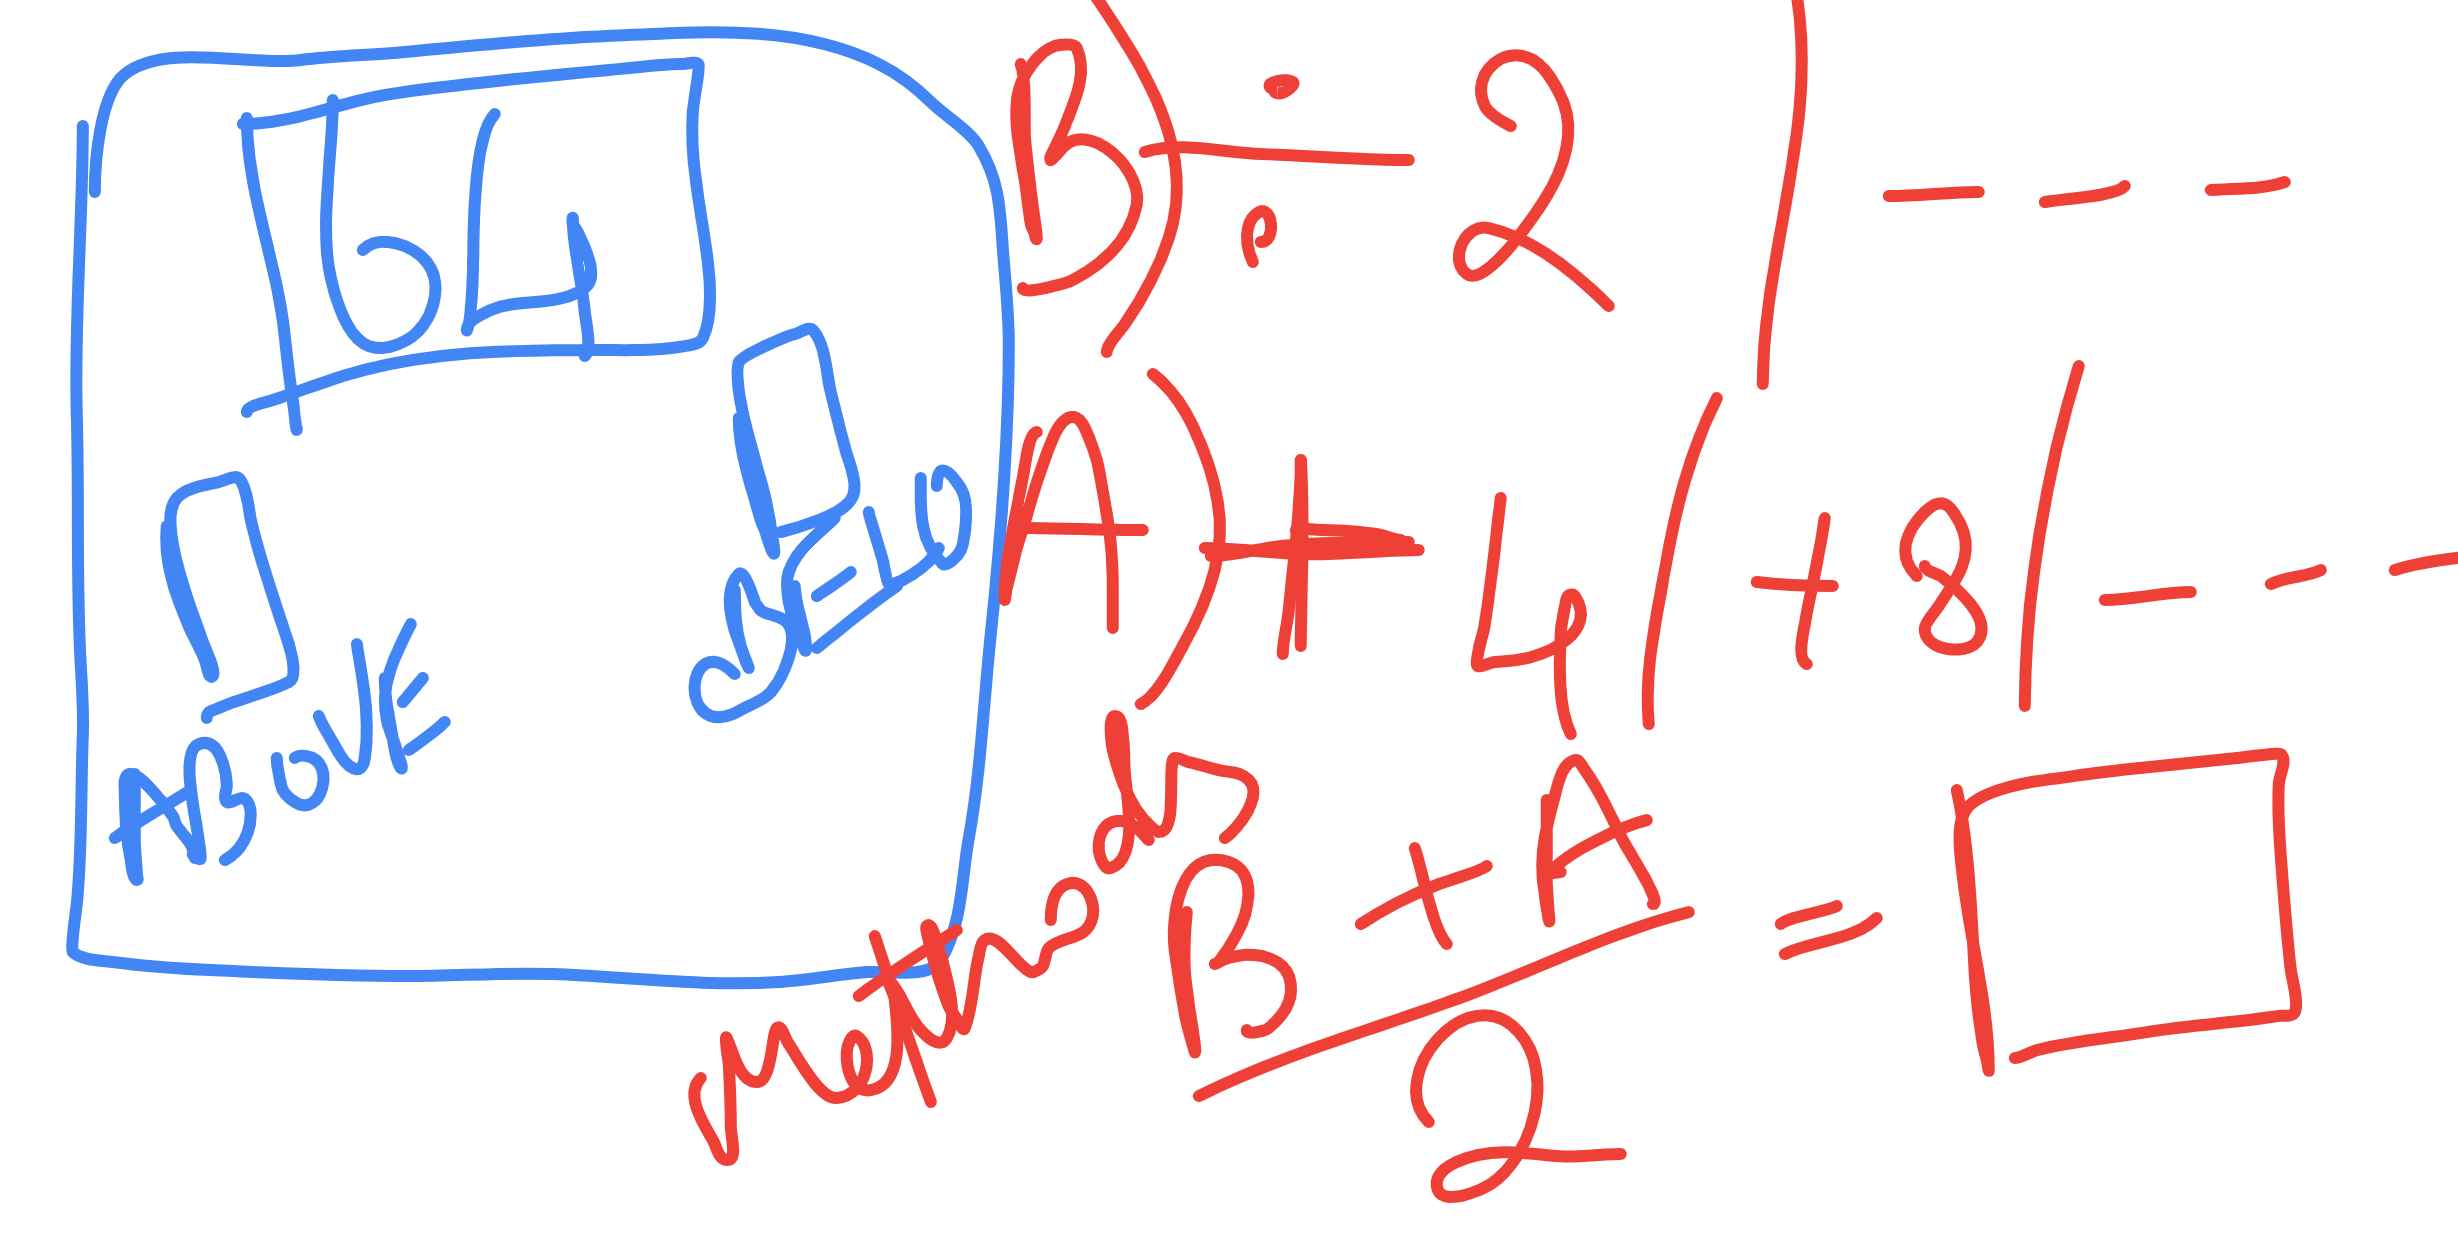 64
ABOVE
BELO
B) ÷ 2 | - - -
A) + 4 | + 8 | - - -
Methods
B + A
2
= □